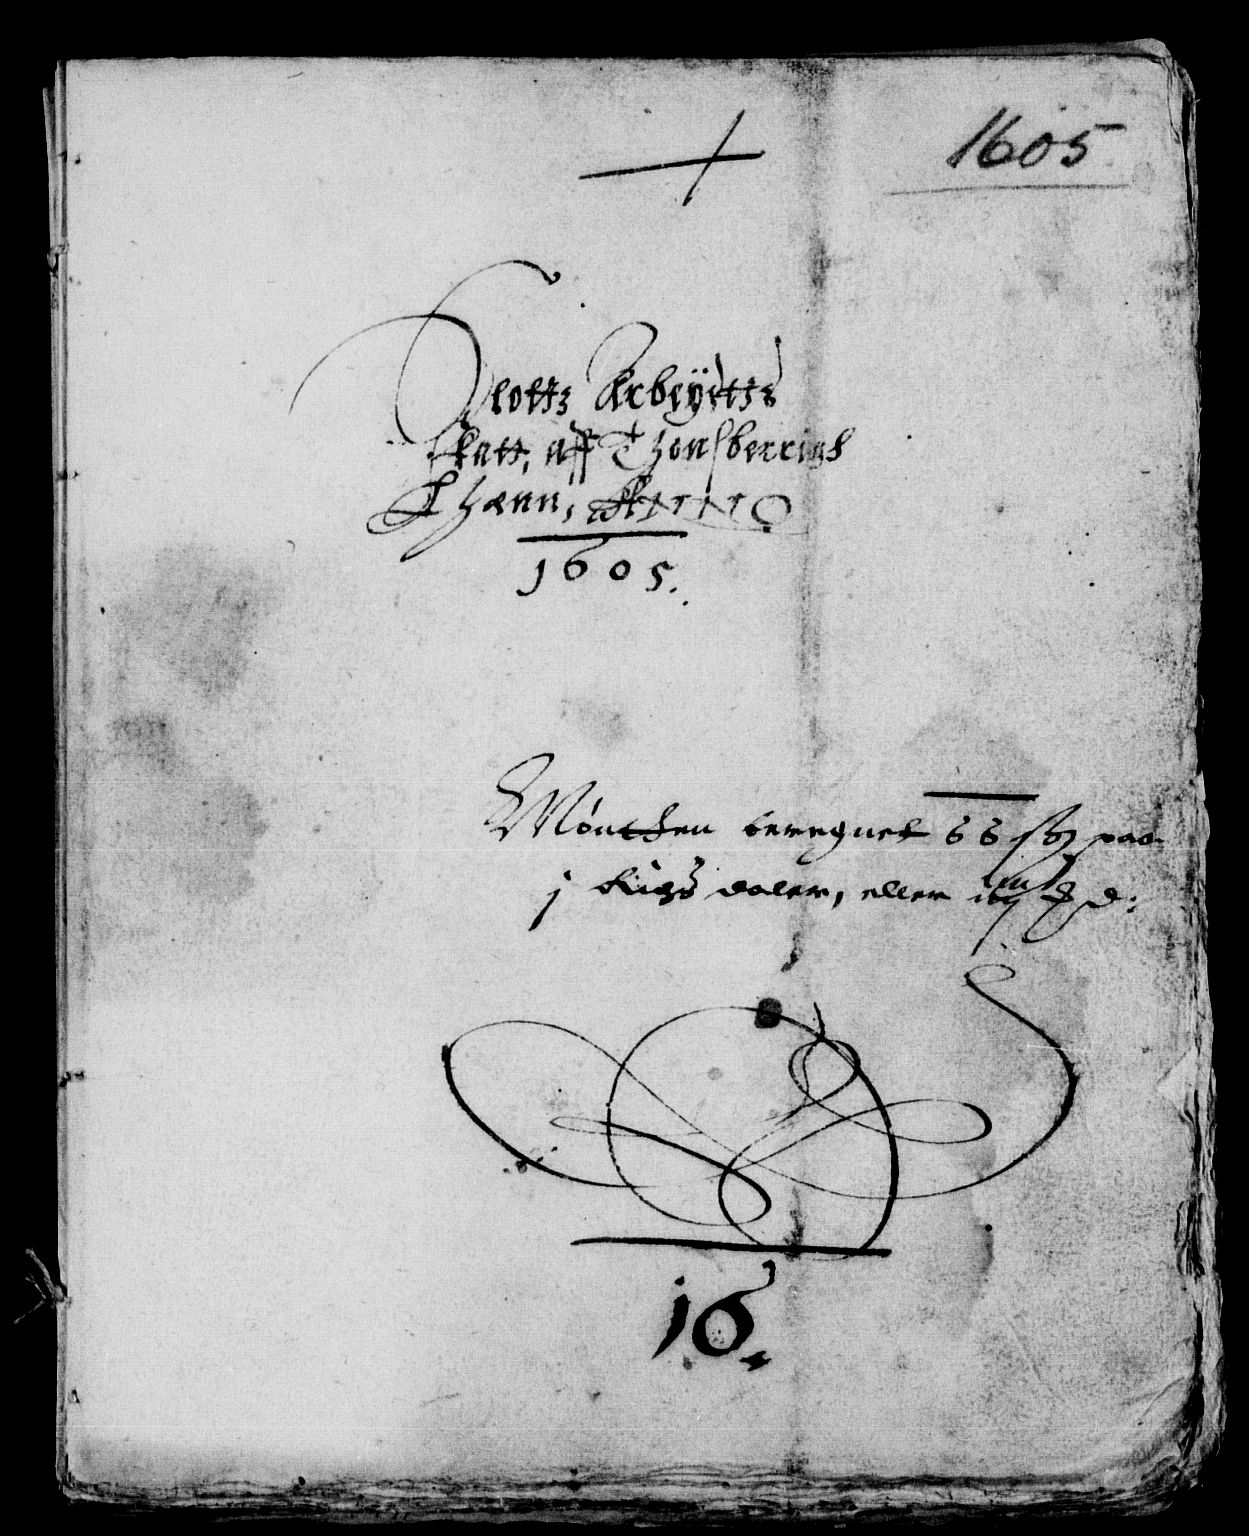 1605
Slotts Arbeÿtts
skatt, aff Thonsberrigs
Lhænn, ANNO
1605.
Møntthen beregnet 66 sß paa
j Rigs daler, eller
16.